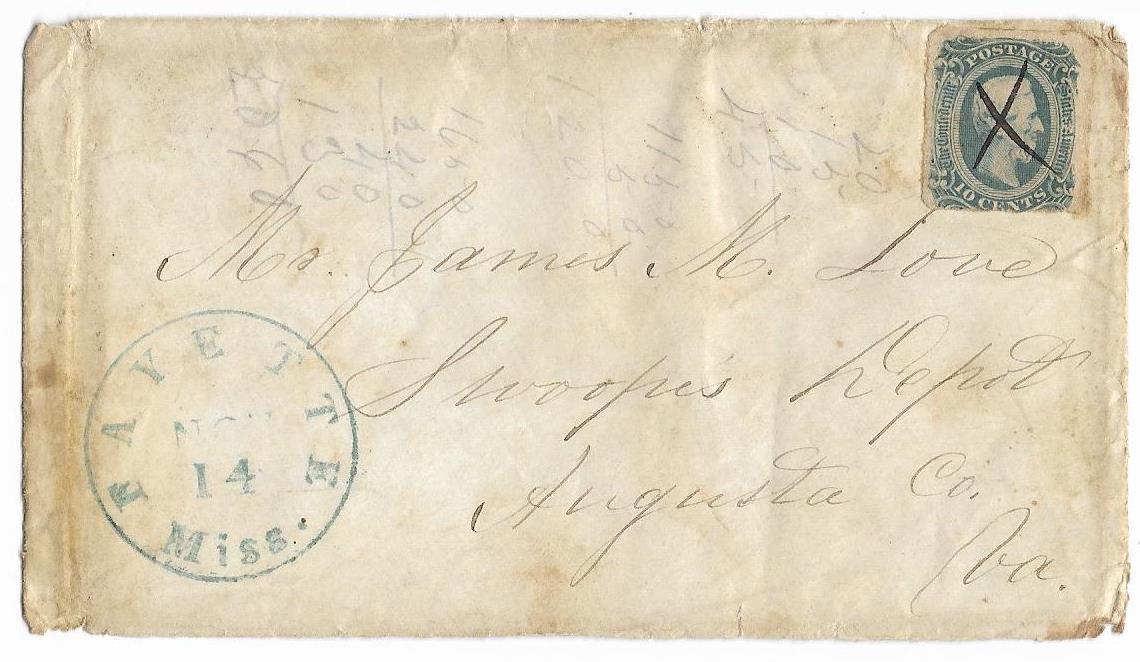 POSTAGE
The Confederate States of America
10 CENTS
Mr. James M. Love
Swoopes Depot
Augusta Co.
Va.
FAYETTE
NOV
14
Miss.